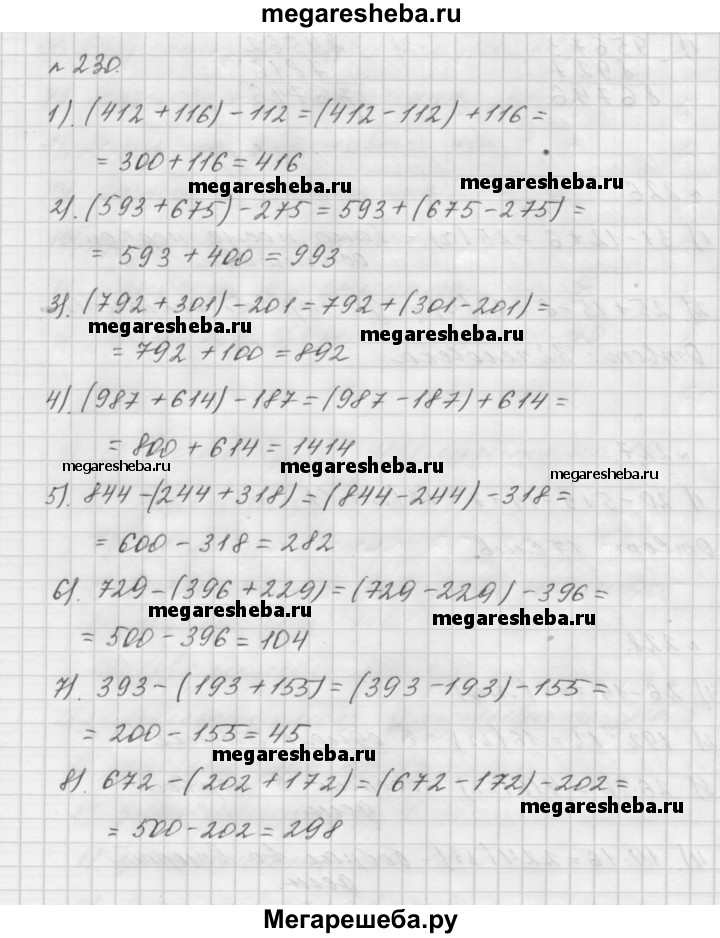 megaresheba.ru
№ 230.
1). (412 + 116) - 112 = (412 - 112) + 116 =
= 300 + 116 = 416
megaresheba.ru megaresheba.ru
2). (593 + 675) - 275 = 593 + (675 - 275) =
= 593 + 400 = 993
3). (792 + 301) - 201 = 792 + (301 - 201) =
megaresheba.ru megaresheba.ru
= 792 + 100 = 892
4). (987 + 614) - 187 = (987 - 187) + 614 =
= 800 + 614 = 1414
megaresheba.ru megaresheba.ru megaresheba.ru
5). 844 - (244 + 318) = (844 - 244) - 318 =
= 600 - 318 = 282
6). 729 - (396 + 229) = (729 - 229) - 396 =
megaresheba.ru megaresheba.ru
= 500 - 396 = 104
7). 393 - (193 + 155) = (393 - 193) - 155 =
= 200 - 155 = 45
megaresheba.ru
8). 672 - (202 + 172) = (672 - 172) - 202 =
megaresheba.ru
= 500 - 202 = 298
Мегарешеба.ру